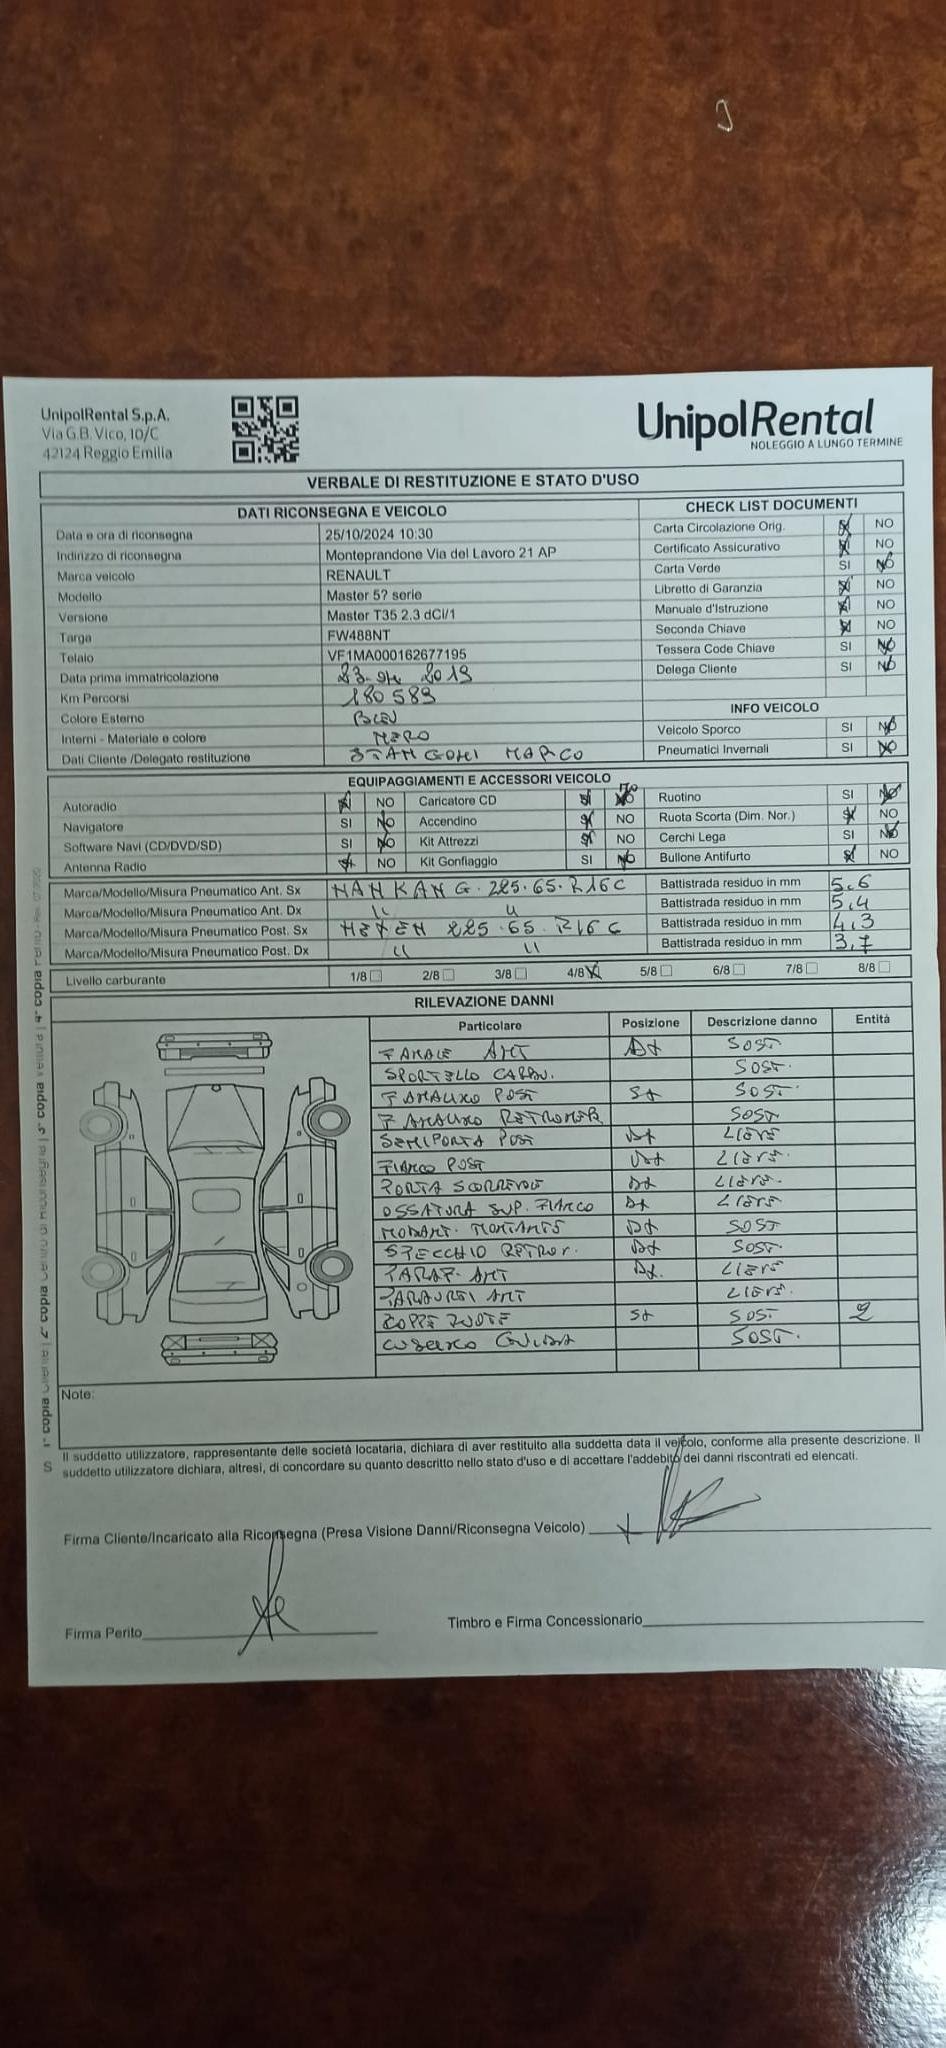 UnipolRental S.p.A.
Via G.B. Vico, 10/C
42124 Reggio Emilia
UnipolRental
NOLEGGIO A LUNGO TERMINE
VERBALE DI RESTITUZIONE E STATO D'USO
DATI RICONSEGNA E VEICOLO
Data e ora di riconsegna 25/10/2024 10:30
Indirizzo di riconsegna Monteprandone Via del Lavoro 21 AP
Marca veicolo RENAULT
Modello Master 5? serie
Versione Master T35 2.3 dCi/1
Targa FW488NT
Telaio VF1MA000162677195
Data prima immatricolazione 2019
Km Percorsi 180589
Colore Esterno BLEU
Interni - Materiale e colore NERO
Dati Cliente /Delegato restituzione MARCO
CHECK LIST DOCUMENTI
Carta Circolazione Orig. NO
Certificato Assicurativo NO
Carta Verde SI NO
Libretto di Garanzia NO
Manuale d'Istruzione NO
Seconda Chiave NO
Tessera Code Chiave SI NO
Delega Cliente SI NO
INFO VEICOLO
Veicolo Sporco SI NO
Pneumatici Invernali SI NO
EQUIPAGGIAMENTI E ACCESSORI VEICOLO
Autoradio NO Caricatore CD SI NO Ruotino SI NO
Navigatore SI NO Accendino NO Ruota Scorta (Dim. Nor.) NO
Software Navi (CD/DVD/SD) SI NO Kit Attrezzi NO Cerchi Lega SI NO
Antenna Radio NO Kit Gonfiaggio SI NO Bullone Antifurto NO
Marca/Modello/Misura Pneumatico Ant. Sx NANKANG. 225.65.R16C Battistrada residuo in mm 5.6
Marca/Modello/Misura Pneumatico Ant. Dx " " Battistrada residuo in mm 5,4
Marca/Modello/Misura Pneumatico Post. Sx NEXEN 225.65.R16C Battistrada residuo in mm 4,3
Marca/Modello/Misura Pneumatico Post. Dx " " Battistrada residuo in mm 3,7
Livello carburante 1/8 2/8 3/8 4/8 5/8 6/8 7/8 8/8
RILEVAZIONE DANNI
Particolare Posizione Descrizione danno Entità
FANALE ANT DX SOST
SPORTELLO CARBU. SOST.
FANALINO POST SX SOST.
FANALINO SOST
SEMIPORTA POST DX LIEVE
FIANCO POST DX LIEVE.
PORTA SCORREVOLE DX LIEVE.
OSSATURA SUP. FIANCO DX LIEVE
MONTANTE DX SOST
SPECCHIO RETROV. DX SOST.
PARAF. ANT DX. LIEVE
PARAURTI ANT LIEVE.
COPPE RUOTE SX SOST 2
CUSCINO GUIDA SOST.
Note:
Il suddetto utilizzatore, rappresentante delle società locataria, dichiara di aver restituito alla suddetta data il veicolo, conforme alla presente descrizione. Il
suddetto utilizzatore dichiara, altresì, di concordare su quanto descritto nello stato d'uso e di accettare l'addebito dei danni riscontrati ed elencati.
Firma Cliente/Incaricato alla Riconsegna (Presa Visione Danni/Riconsegna Veicolo)
Firma Perito
Timbro e Firma Concessionario